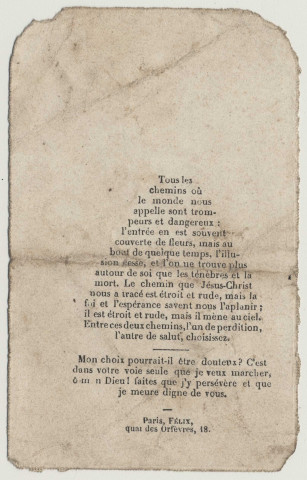 Tous les
chemins où
le monde nous
appelle sont trom-
peurs et dangereux :
l'entrée en est souvent
couverte de fleurs, mais au
bout de quelque temps, l'illu-
sion cesse, et l'on ne trouve plus
autour de soi que les ténèbres et la
mort. Le chemin que Jésus-Christ
nous a tracé est étroit et rude, mais la
foi et l'espérance savent nous l'aplanir ;
il est étroit et rude, mais il mène au ciel.
Entre ces deux chemins, l'un de perdition,
l'autre de salut, choisissez.
Mon choix pourrait-il être douteux? C'est
dans votre voie seule que je veux marcher,
ô mon Dieu ! faites que j'y persévère et que
je meure digne de vous.
Paris, FÉLIX,
quai des Orfèvres, 18.